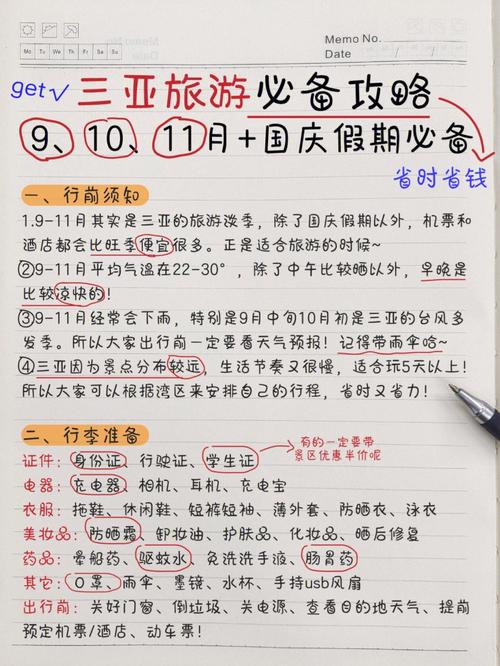 Memo No.
Mo Tu We Th Fr Sa Su
Date / /
get√ 三亚旅游必备攻略
9、10、11月+国庆假期必备
省时省钱
一、行前须知
1.9-11月其实是三亚的旅游淡季，除了国庆假期以外，机票和
酒店都会比旺季便宜很多。正是适合旅游的时候~
②9-11月平均气温在22-30°，除了中午比较晒以外，早晚是
比较凉快的！
③9-11月经常会下雨，特别是9月中旬10月初是三亚的台风多
发季。所以大家出行前一定要看天气预报！记得带雨伞哈~
④三亚因为景点分布较远，生活节奏又很慢，适合玩5天以上！
所以大家可以根据湾区来安排自己的行程，省时又省力！
二、行李准备
有的一定要带
景区优惠半价呢
证件：身份证、行驶证、学生证
电器：充电器、相机、耳机、充电宝
衣服：拖鞋、休闲鞋、短裤短袖、薄外套、防晒衣、泳衣
美妆品：防晒霜、卸妆油、护肤品、化妆品、晒后修复
药品：晕船药、驱蚊水、免洗洗手液、肠胃药
其它：口罩、雨伞、墨镜、水杯、手持usb风扇
出行前：关好门窗、倒垃圾、关电源、查看目的地天气、提前
预定机票/酒店、动车票！